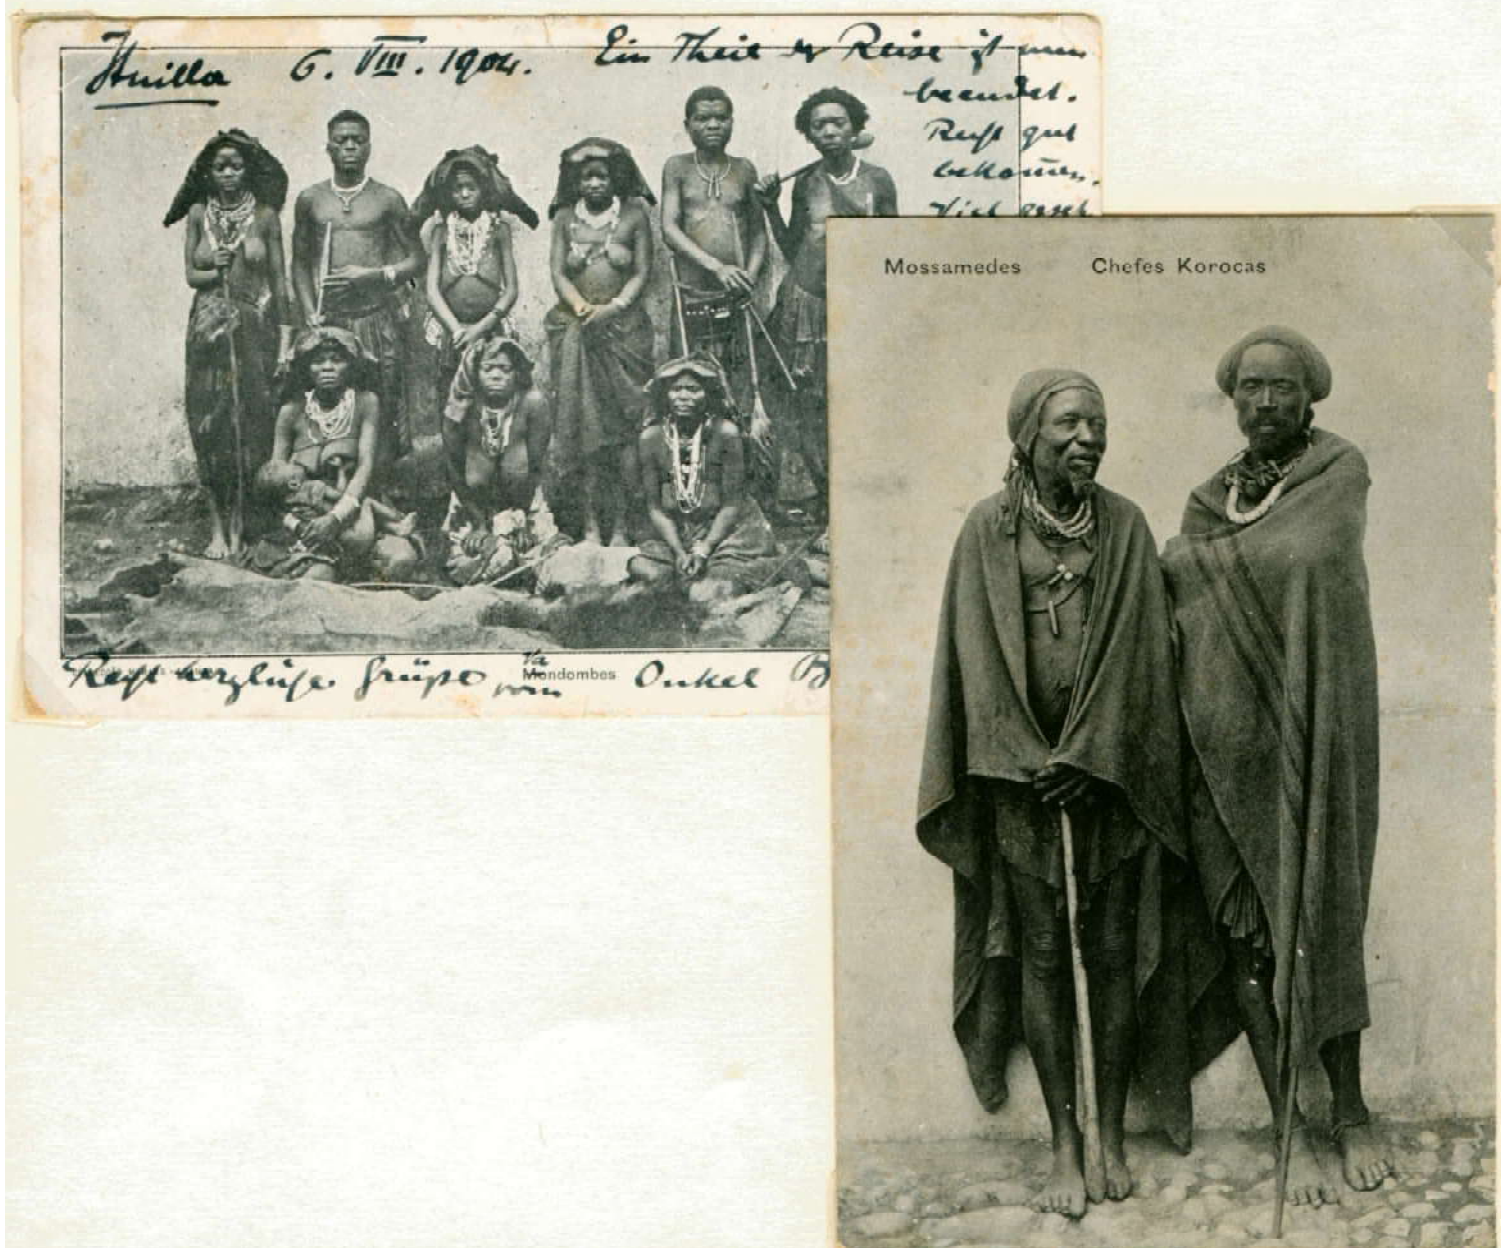 Huilla 6. VIII. 1904. Ein Theil der Reise ist nun
beendet.
Recht gut
bekommen.
Viel geseh
Mondombes
Recht herzliche Grüße vom Onkel B
Mossamedes Chefes Korocas